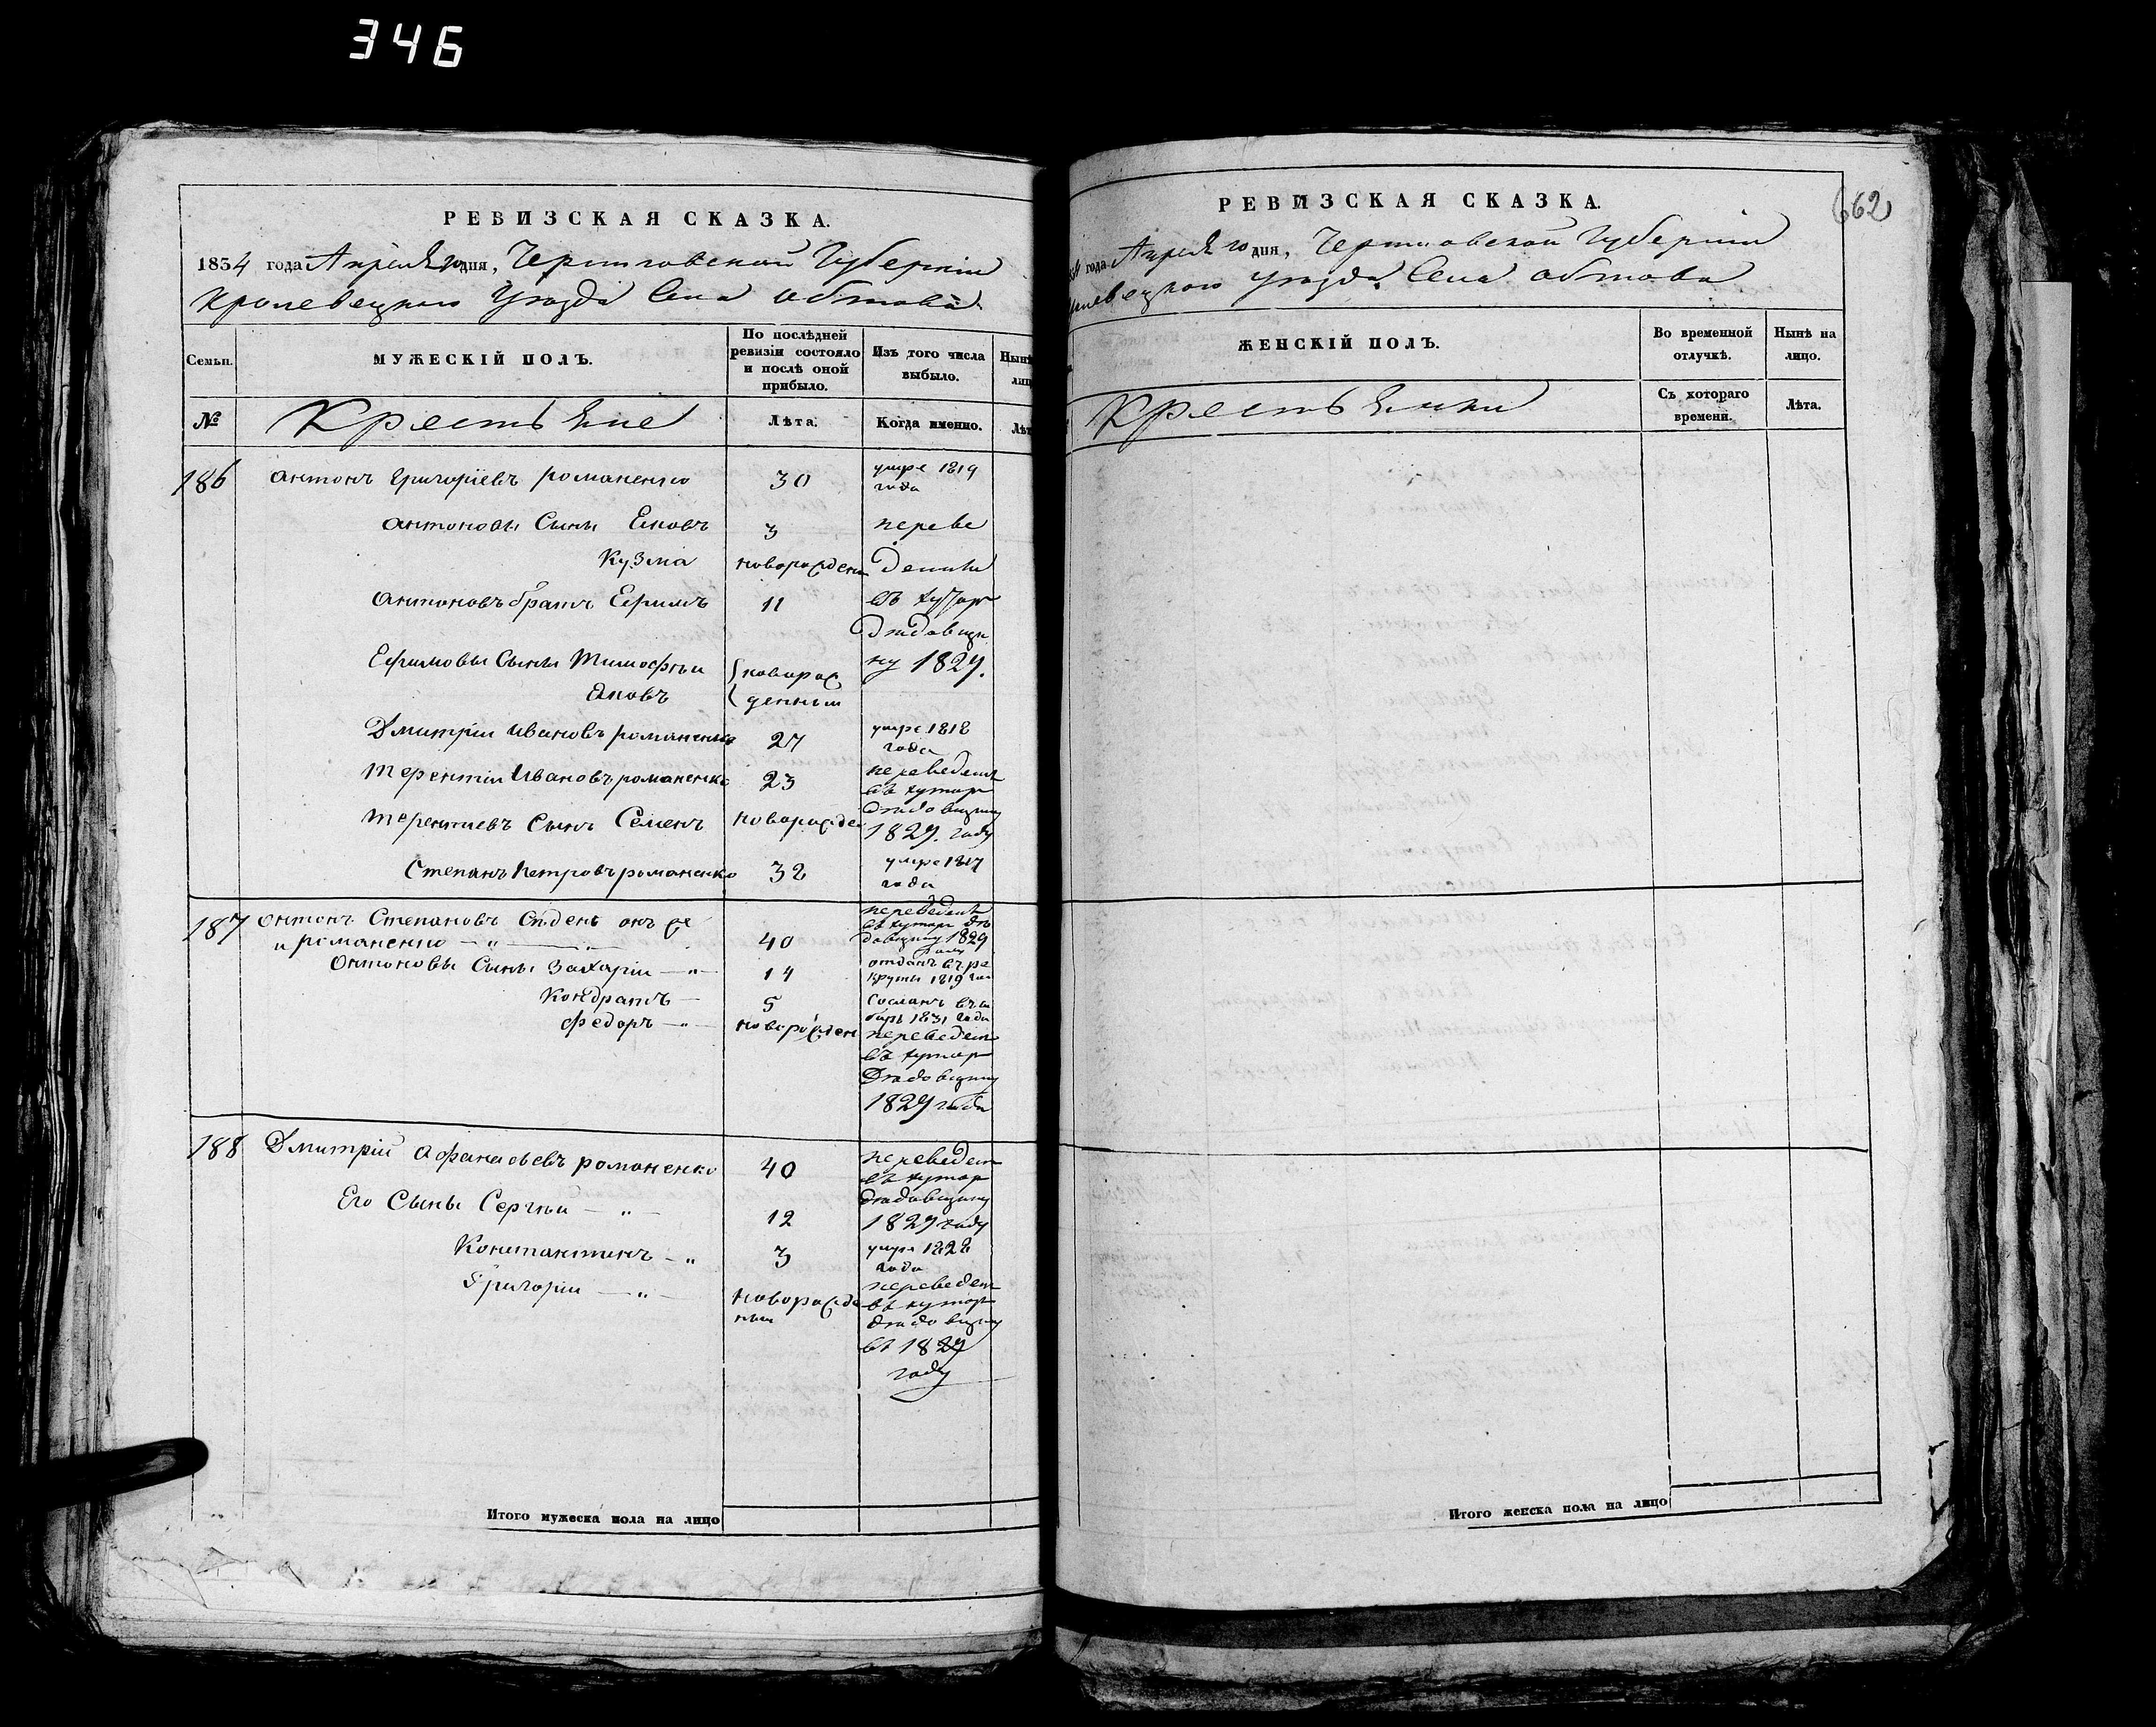 346
РЕВИЗСКАЯ СКАЗКА.
1834 года Апреля 10 дня, Черниговской Губерніи
Кролевецкого Уѣзда Села Обтова
Семьи.
МУЖЕСКІЙ ПОЛЪ.
По послѣдней ревизіи состояло и послѣ оной прибыло.
Изъ того числа выбыло.
№
Крестьяне
Лѣта.
Когда именно.
186 антонъ Григоріевъ романенко 30 умре 1819 года
антоновы Сыны Яковъ 3 переве
Кузма новорожден дены
антоновъ братъ Ефимъ 11 въ хутор
дѣдовщи
Ефимовы Сыны Тимофѣи новорож ну 1829.
Яковъ денныи
Дмитріи Ивановъ романенко 27 умре 1818 года
Терентіи Ивановъ романенко 23 переведенъ въ хутор
Терентиевъ Сынъ Семенъ новорожде дѣдовщину 1829. году
Степанъ Петровъ романенко 32 умре 1817 года
187 антонъ Степановъ онъ же
и романенко 40 переведенъ въ хутор дѣдовщину 1829 году
Антоновы Сыны Захаріи 14 отданъ въ рекруты 1819 го
Кондратъ 5 Сосланъ въ си бирь 1831 года
Федоръ новорожден переведен
въ хутор
Дѣдовщину
1829 года
188 Дмитрій Афанасьевъ романенко 40 переведен въ хутор
Его Сыны Сергѣи 12 дѣдовщину 1829 году
Константинъ 3 умре 1828 года
Григоріи новорожде ныи переведен въ хутор дѣдовщину
въ 1829
году
Итого мужеска пола на лицо
РЕВИЗСКАЯ СКАЗКА.
662
года Апреля 10 дня, Черниговской Губерніи
Уѣзда Села Обтова
ЖЕНСКІЙ ПОЛЪ.
Во временной отлучкѣ.
Нынѣ на лицо.
Крестьянки
Съ котораго времени.
Лѣта.
Итого женска пола на лицо